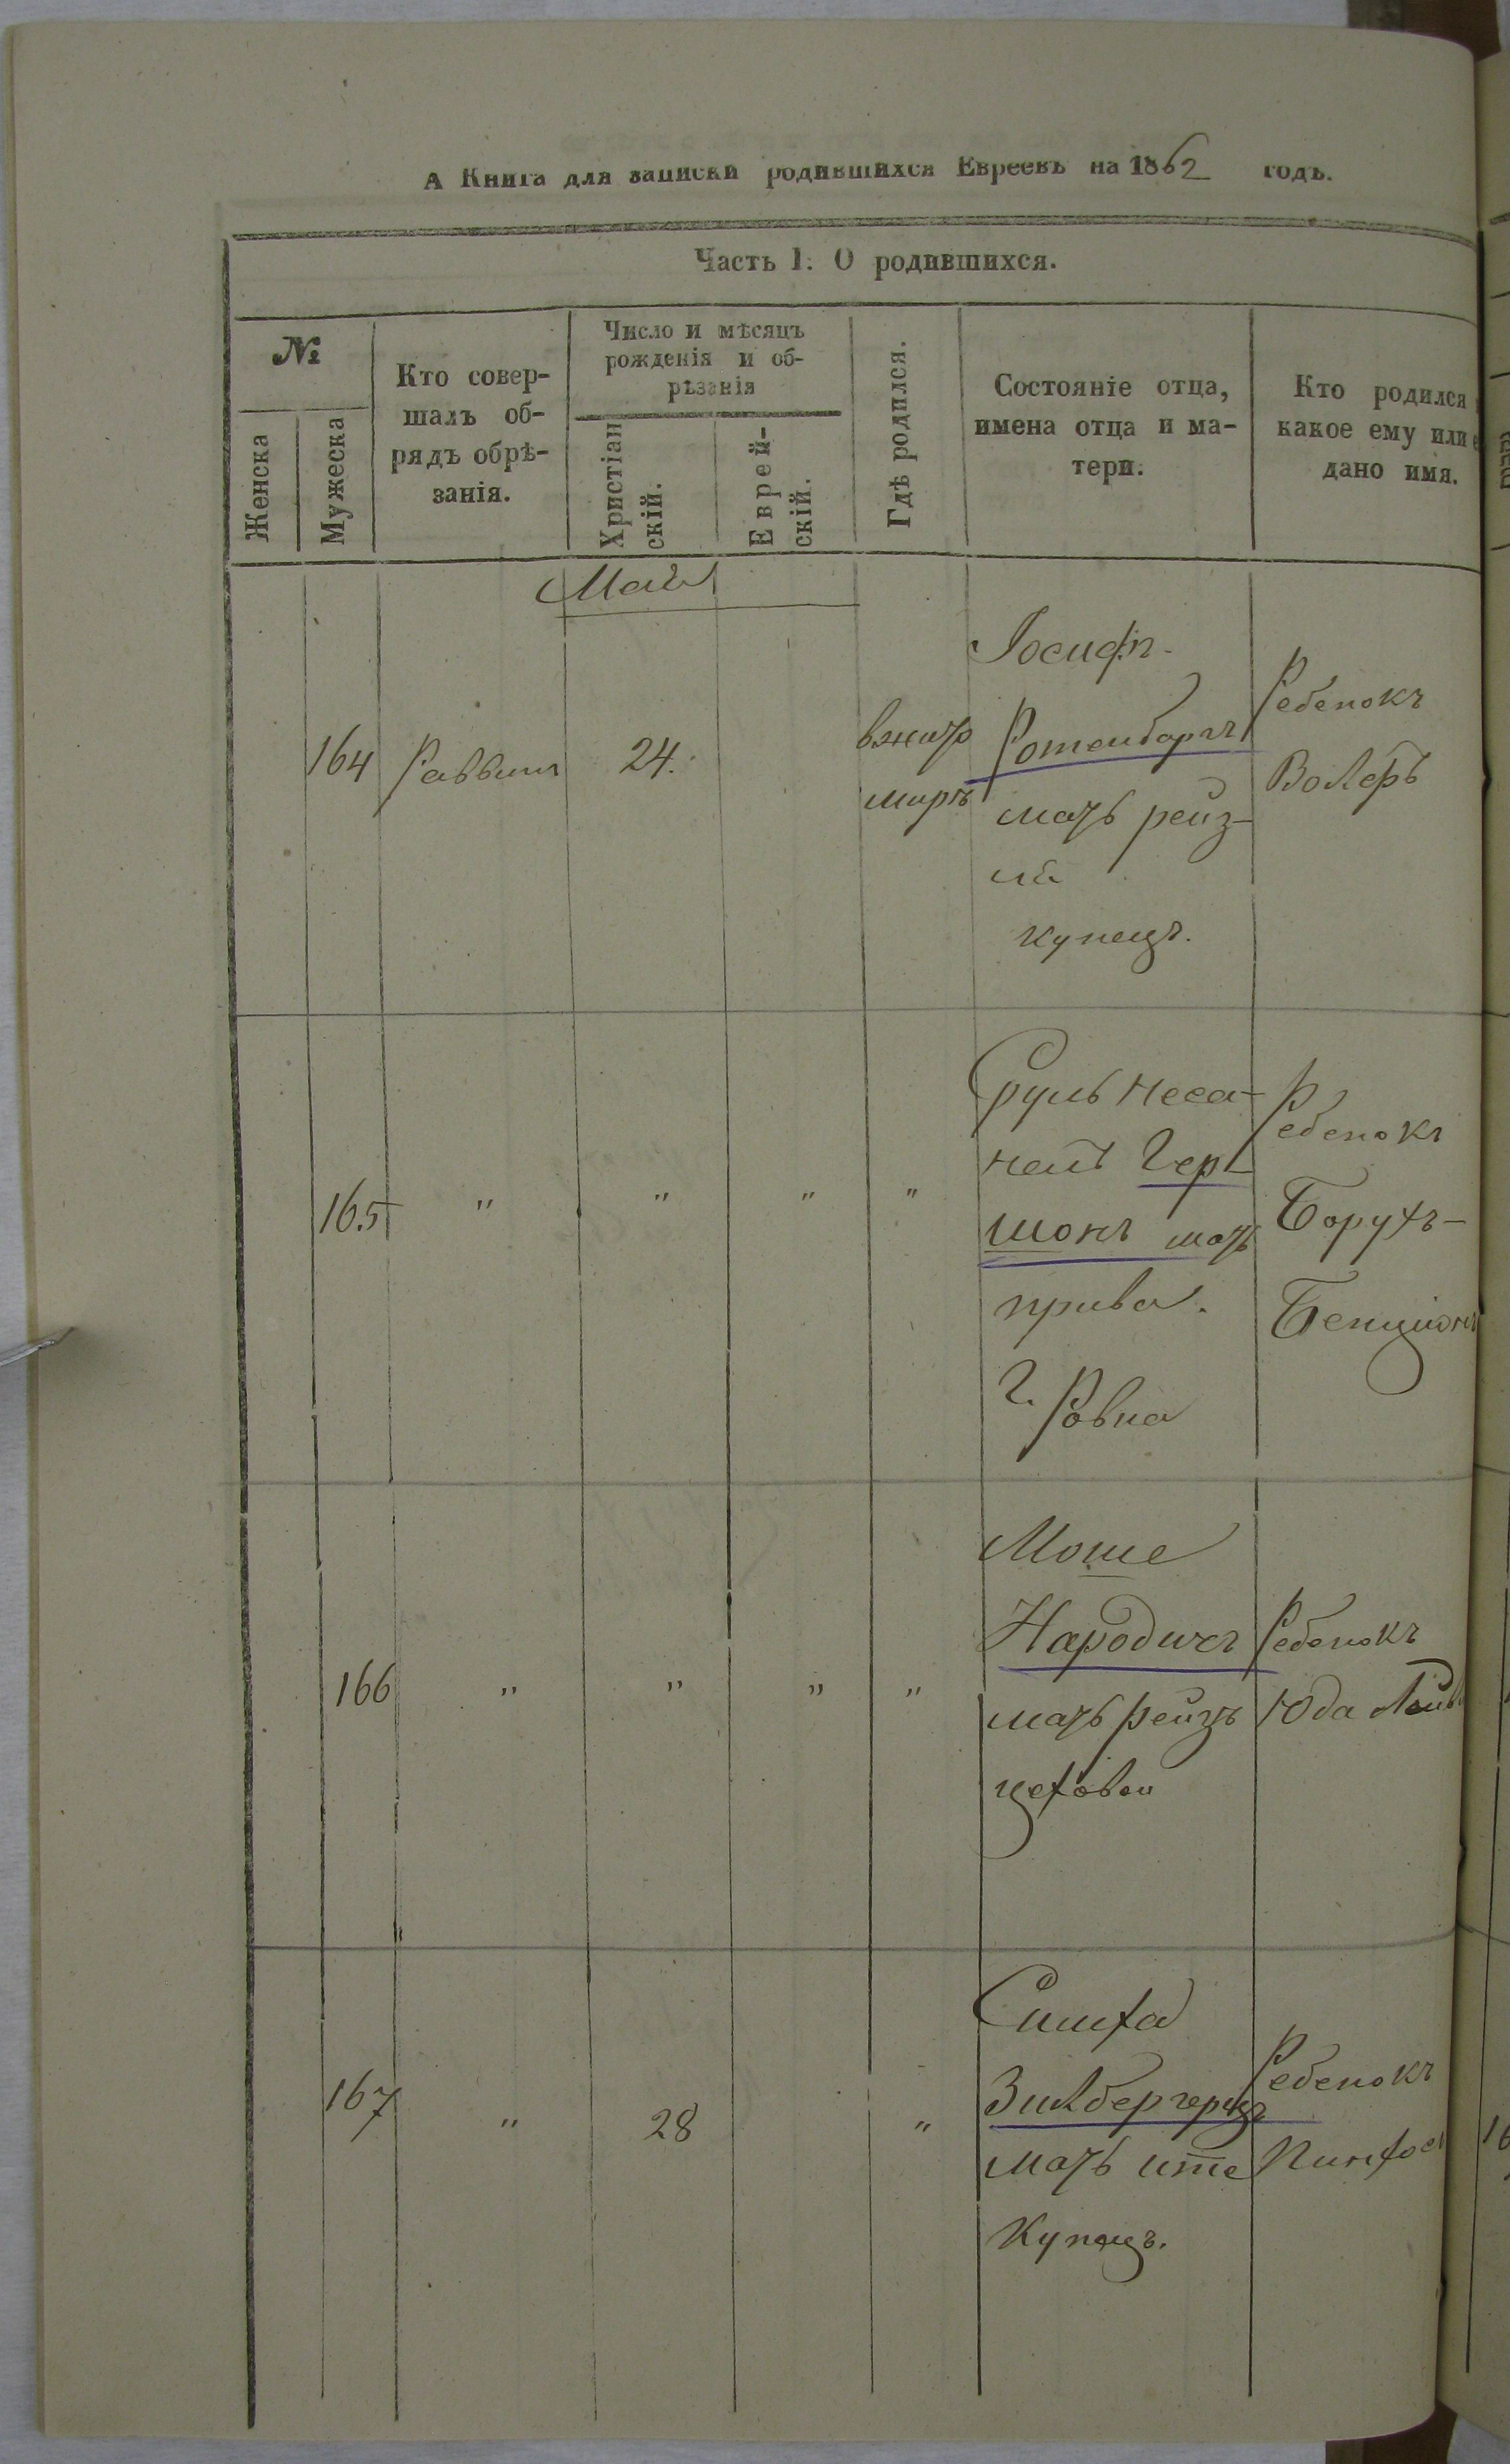 А Книга для записки родившихся Евреевъ на 1862 годъ.
Часть 1. О родившихся.
№
Женска
Мужеска
Кто совер-
шалъ об-
рядъ обрѣ-
занія.
Число и мѣсяцъ
рожденія и об-
рѣзанія
Христіан
скій.
Еврей-
скій.
Гдѣ родился.
Состояніе отца,
имена отца и ма-
тери.
Кто родился
какое ему или
дано имя.
Май
164
Раввинъ
24.
вжито
миръ
Іосифъ
Ротенбаргъ
мать рейз-
ля
купецъ.
Ребенокъ
Волеръ
165
"
"
"
"
Сруль Неса-
нелъ Гер-
шонъ мать
прива.
г. Ровна
Ребенокъ
Борухъ-
Бенціонъ
166
"
"
"
"
Моше
Народичъ
мать рейзъ
цеховой
Ребенокъ
Юда Лейб
167
"
28
"
Симха
Зилбергерцъ
мать ите
Купецъ.
Ребенокъ
Пинхос
16